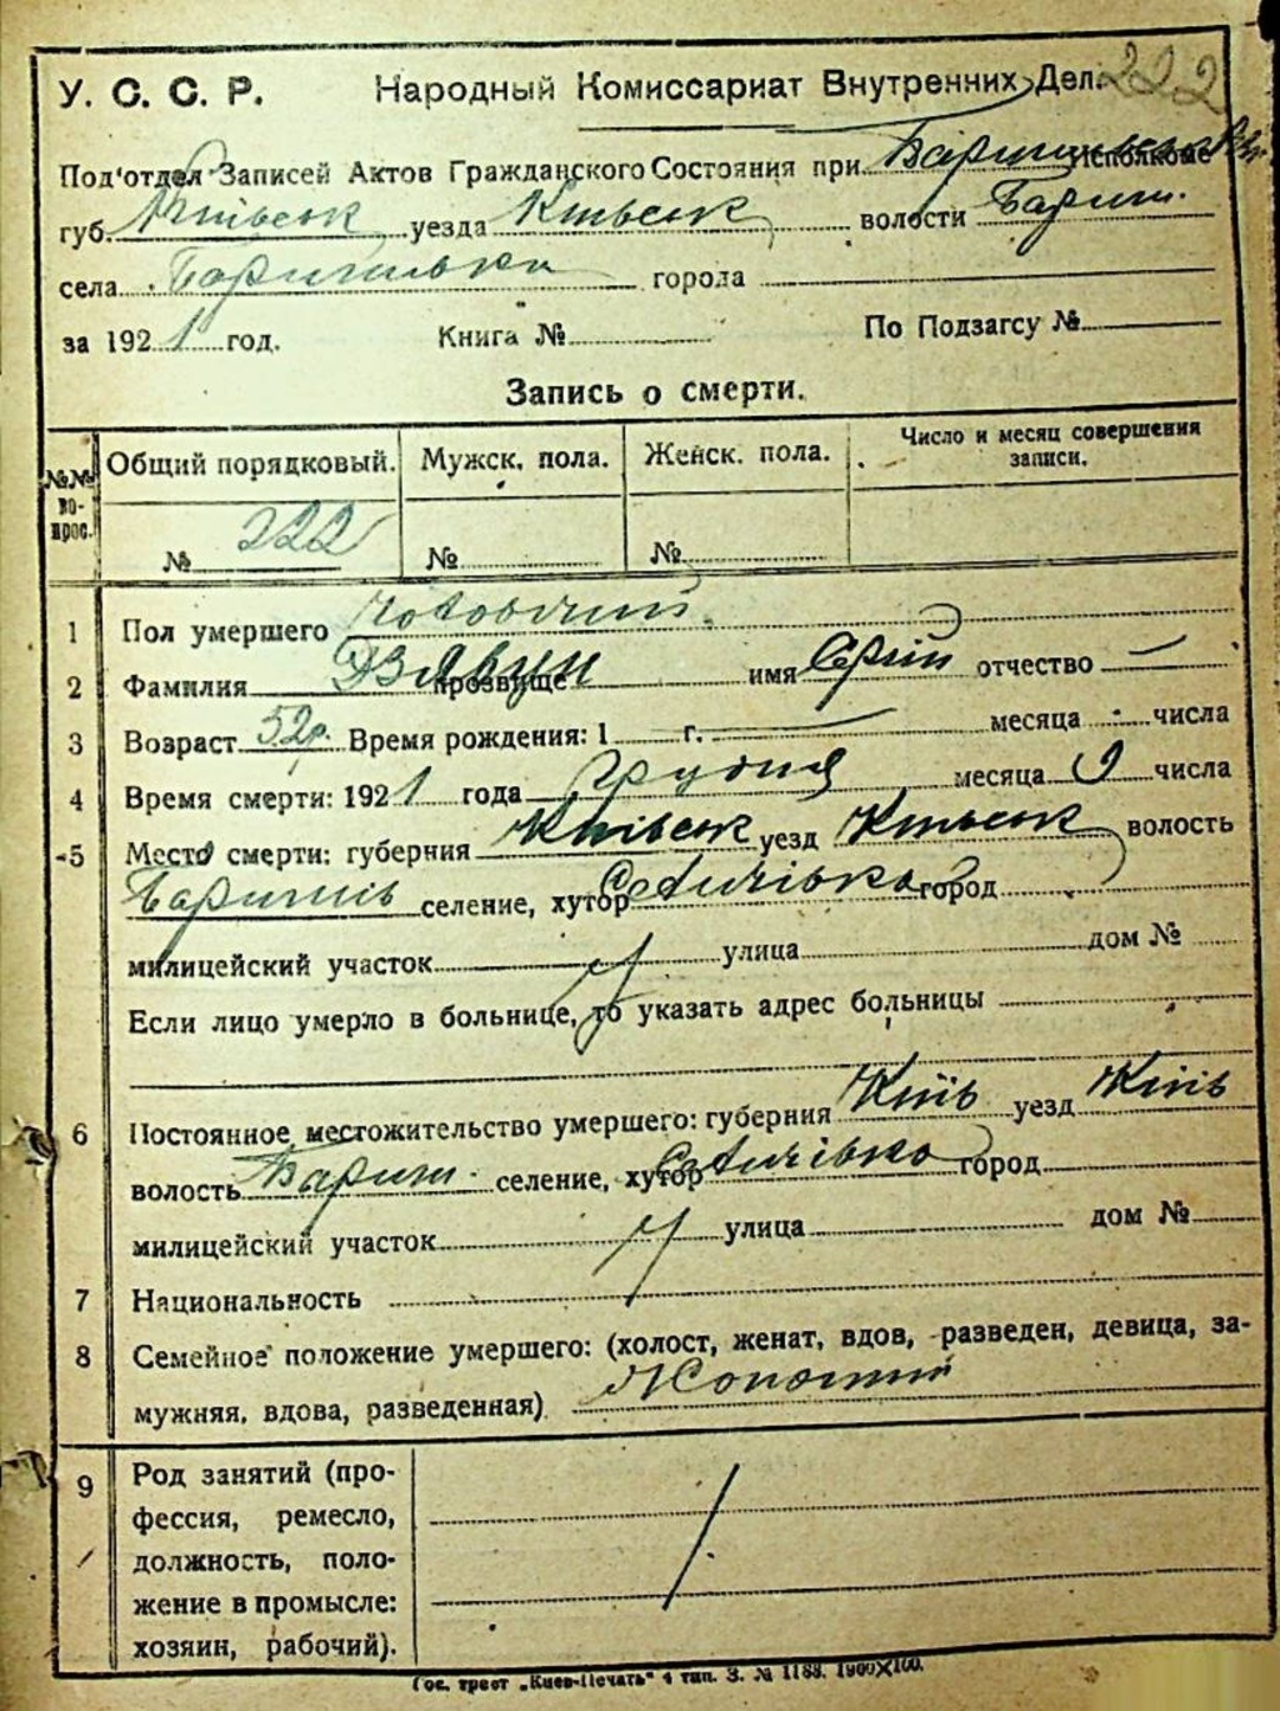 У. С. С. Р. Народный Комиссариат Внутренних Дел. 222
Под'отдел Записей Актов Гражданского Состояния при Исполкоме
губ. Київськ уезда Київськ волости Бариш.
села Баришівка города
за 1921 год. Книга № По Подзагсу №
Запись о смерти.
№№ во-прос. Общий порядковый. Мужск. пола. Женск. пола. Число и месяц совершения записи.
№ 222 № №
1 Пол умершего чоловічий.
2 Фамилия прозвище Дзявун имя Сергій отчество —
3 Возраст 52р. Время рождения: 1 г. месяца числа
4 Время смерти: 1921 года Грудня месяца 9 числа
5 Место смерти: губерния Київськ уезд Київськ волость
Баришів селение, хутор Селичівка город
милицейский участок улица дом №
Если лицо умерло в больнице, то указать адрес больницы
6 Постоянное местожительство умершего: губерния Київ уезд Київ
волость Бариш. селение, хутор Селичівка город
милицейский участок улица дом №
7 Национальность
8 Семейное положение умершего: (холост, женат, вдов, разведен, девица, за-
мужняя, вдова, разведенная) Жонатий
9 Род занятий (про-
фессия, ремесло,
должность, поло-
жение в промысле:
хозяин, рабочий).
Гос. трест „Киев-Печать" 4 тип. З. № 1188. 1900×100.